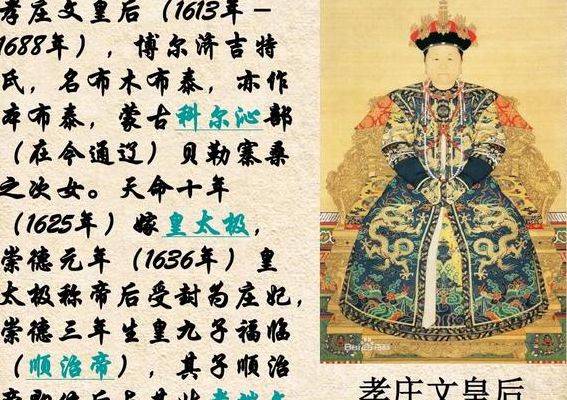 孝庄文皇后（1613年－
1688年），博尔济吉特
氏，名布木布泰，亦作
本布泰，蒙古科尔沁部
（在今通辽）贝勒寨桑
之次女。天命十年
（1625年）嫁皇太极，
崇德元年（1636年）皇
太极称帝后受封为庄妃，
崇德三年生皇九子福临
（顺治帝），其子顺治
孝庄文皇后